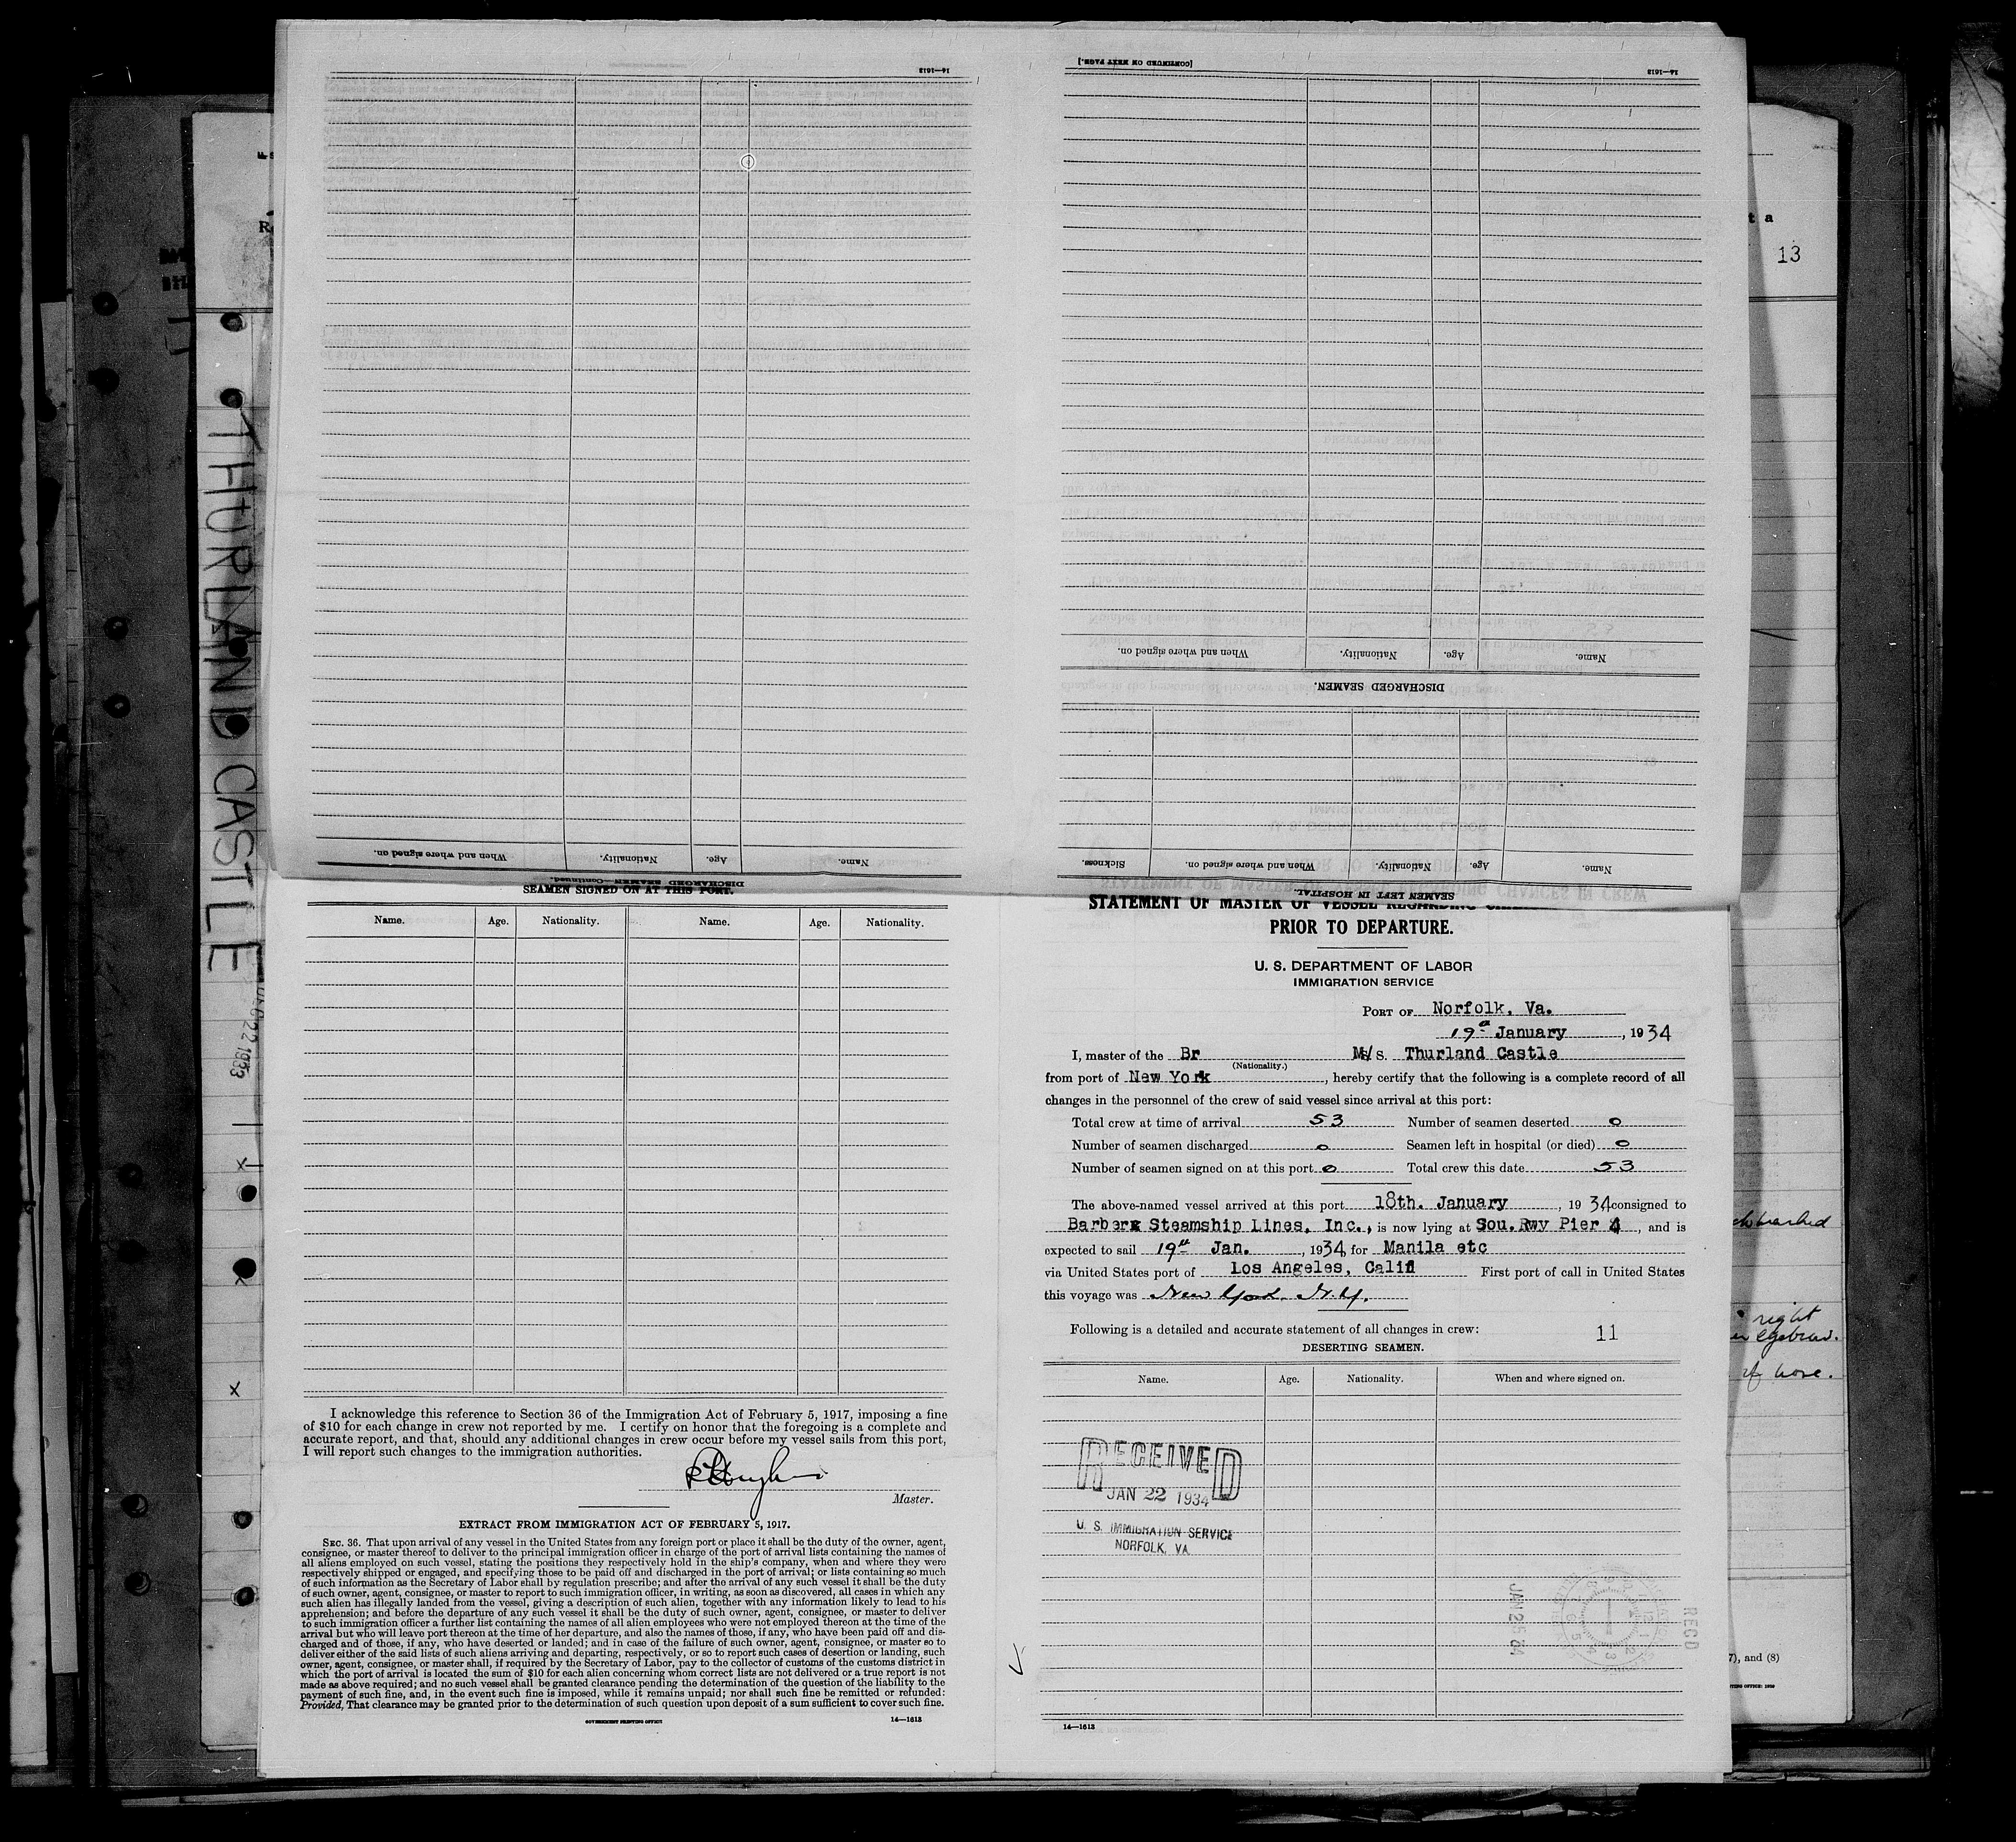 14—1613
[CONTINUED ON NEXT PAGE.]
14—1613
13
THURLAND CASTLE
DEC 22 1933
When and where signed on.
Nationality.
Age.
Name.
DISCHARGED SEAMEN—Continued.
When and where signed on.
Nationality.
Age.
Name.
DISCHARGED SEAMEN.
Sickness.
When and where signed on.
Nationality.
Age.
Name.
SEAMEN LEFT IN HOSPITAL.
SEAMEN SIGNED ON AT THIS PORT.
Name. Age. Nationality. Name. Age. Nationality.
I acknowledge this reference to Section 36 of the Immigration Act of February 5, 1917, imposing a fine
of $10 for each change in crew not reported by me. I certify on honor that the foregoing is a complete and
accurate report, and that, should any additional changes in crew occur before my vessel sails from this port,
I will report such changes to the immigration authorities.
Master.
EXTRACT FROM IMMIGRATION ACT OF FEBRUARY 5, 1917.
SEC. 36. That upon arrival of any vessel in the United States from any foreign port or place it shall be the duty of the owner, agent,
consignee, or master thereof to deliver to the principal immigration officer in charge of the port of arrival lists containing the names of
all aliens employed on such vessel, stating the positions they respectively hold in the ship's company, when and where they were
respectively shipped or engaged, and specifying those to be paid off and discharged in the port of arrival; or lists containing so much
of such information as the Secretary of Labor shall by regulation prescribe; and after the arrival of any such vessel it shall be the duty
of such owner, agent, consignee, or master to report to such immigration officer, in writing, as soon as discovered, all cases in which any
such alien has illegally landed from the vessel, giving a description of such alien, together with any information likely to lead to his
apprehension; and before the departure of any such vessel it shall be the duty of such owner, agent, consignee, or master to deliver
to such immigration officer a further list containing the names of all alien employees who were not employed thereon at the time of the
arrival but who will leave port thereon at the time of her departure, and also the names of those, if any, who have been paid off and dis-
charged and of those, if any, who have deserted or landed; and in case of the failure of such owner, agent, consignee, or master so to
deliver either of the said lists of such aliens arriving and departing, respectively, or so to report such cases of desertion or landing, such
owner, agent, consignee, or master shall, if required by the Secretary of Labor, pay to the collector of customs of the customs district in
which the port of arrival is located the sum of $10 for each alien concerning whom correct lists are not delivered or a true report is not
made as above required; and no such vessel shall be granted clearance pending the determination of the question of the liability to the
payment of such fine, and, in the event such fine is imposed, while it remains unpaid; nor shall such fine be remitted or refunded:
Provided, That clearance may be granted prior to the determination of such question upon deposit of a sum sufficient to cover such fine.
GOVERNMENT PRINTING OFFICE 14—1613
STATEMENT OF MASTER OF VESSEL REGARDING
PRIOR TO DEPARTURE.
U. S. DEPARTMENT OF LABOR
IMMIGRATION SERVICE
PORT OF Norfolk, Va.
19th January, 1934
I, master of the Br M/S. Thurland Castle
(Nationality.)
from port of New York, hereby certify that the following is a complete record of all
changes in the personnel of the crew of said vessel since arrival at this port:
Total crew at time of arrival 53 Number of seamen deserted 0
Number of seamen discharged 0 Seamen left in hospital (or died) 0
Number of seamen signed on at this port 0 Total crew this date 53
The above-named vessel arrived at this port 18th. January, 1934 consigned to
Barber Steamship Lines, Inc., is now lying at Sou. Rwy Pier 4, and is
expected to sail 19th Jan., 1934, for Manila etc
via United States port of Los Angeles, Calif First port of call in United States
this voyage was New York, N.Y.
Following is a detailed and accurate statement of all changes in crew: 11
DESERTING SEAMEN.
Name. Age. Nationality. When and where signed on.
RECEIVED
JAN 22 1934
U. S. IMMIGRATION SERVICE
NORFOLK, VA
JAN 25 34
REC'D
14—1613
right
eyebrow.
of nose.
7), and (8)